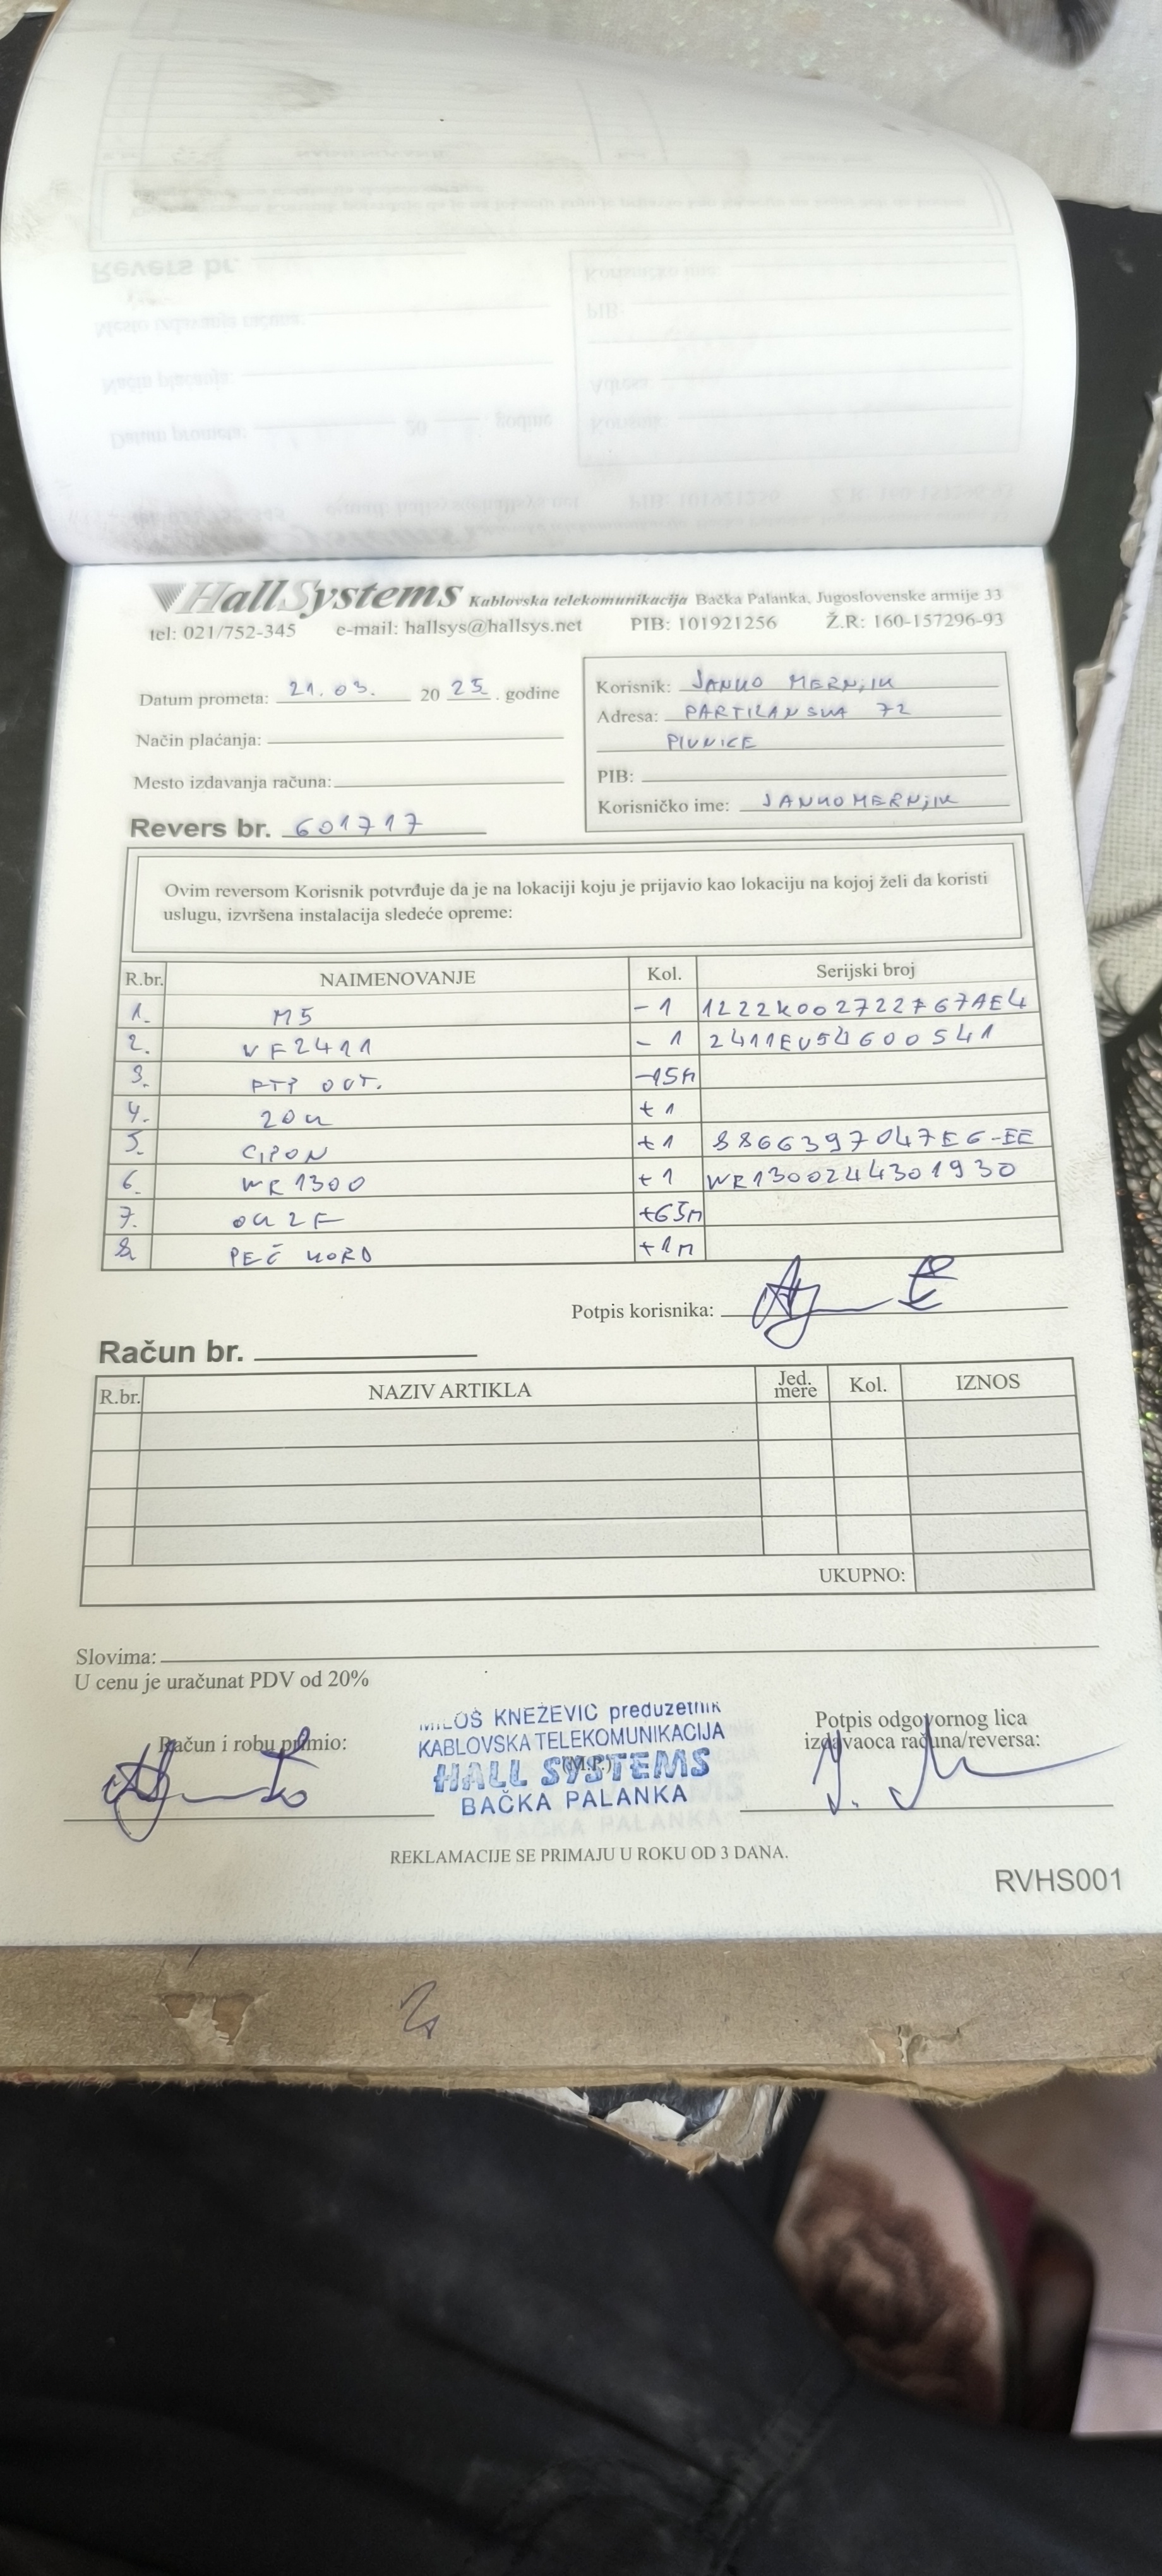 HallSystems Kablovska telekomunikacija Bačka Palanka, Jugoslovenske armije 33
tel: 021/752-345 e-mail: hallsys@hallsys.net PIB: 101921256 Ž.R: 160-157296-93
Datum prometa: 21.03. 20 25 . godine
Način plaćanja:
Mesto izdavanja računa:
Revers br. 601717
Korisnik: JANKO MERNJIK
Adresa: PARTIZANSKA 72
PIVNICE
PIB:
Korisničko ime: JANKOMERNJIK
Ovim reversom Korisnik potvrđuje da je na lokaciji koju je prijavio kao lokaciju na kojoj želi da koristi
uslugu, izvršena instalacija sledeće opreme:
R.br. NAIMENOVANJE Kol. Serijski broj
1. M5 -1 1222K002722767AE4
2. VF2411 -1 2411EV54600541
3. FTP OUT. -15M
4. ZOK +1
5. GPON +1 8866397047E6-EE
6. WR1300 +1 WR1300244301930
7. OK 2F +65M
8. PEČ KORD +1M
Potpis korisnika:
Račun br.
R.br. NAZIV ARTIKLA Jed. mere Kol. IZNOS
UKUPNO:
Slovima:
U cenu je uračunat PDV od 20%
Račun i robu primio:
MILOŠ KNEŽEVIĆ preduzetnik
KABLOVSKA TELEKOMUNIKACIJA
(M.P.)
HALL SYSTEMS
BAČKA PALANKA
Potpis odgovornog lica
izdavaoca računa/reversa:
REKLAMACIJE SE PRIMAJU U ROKU OD 3 DANA.
RVHS001